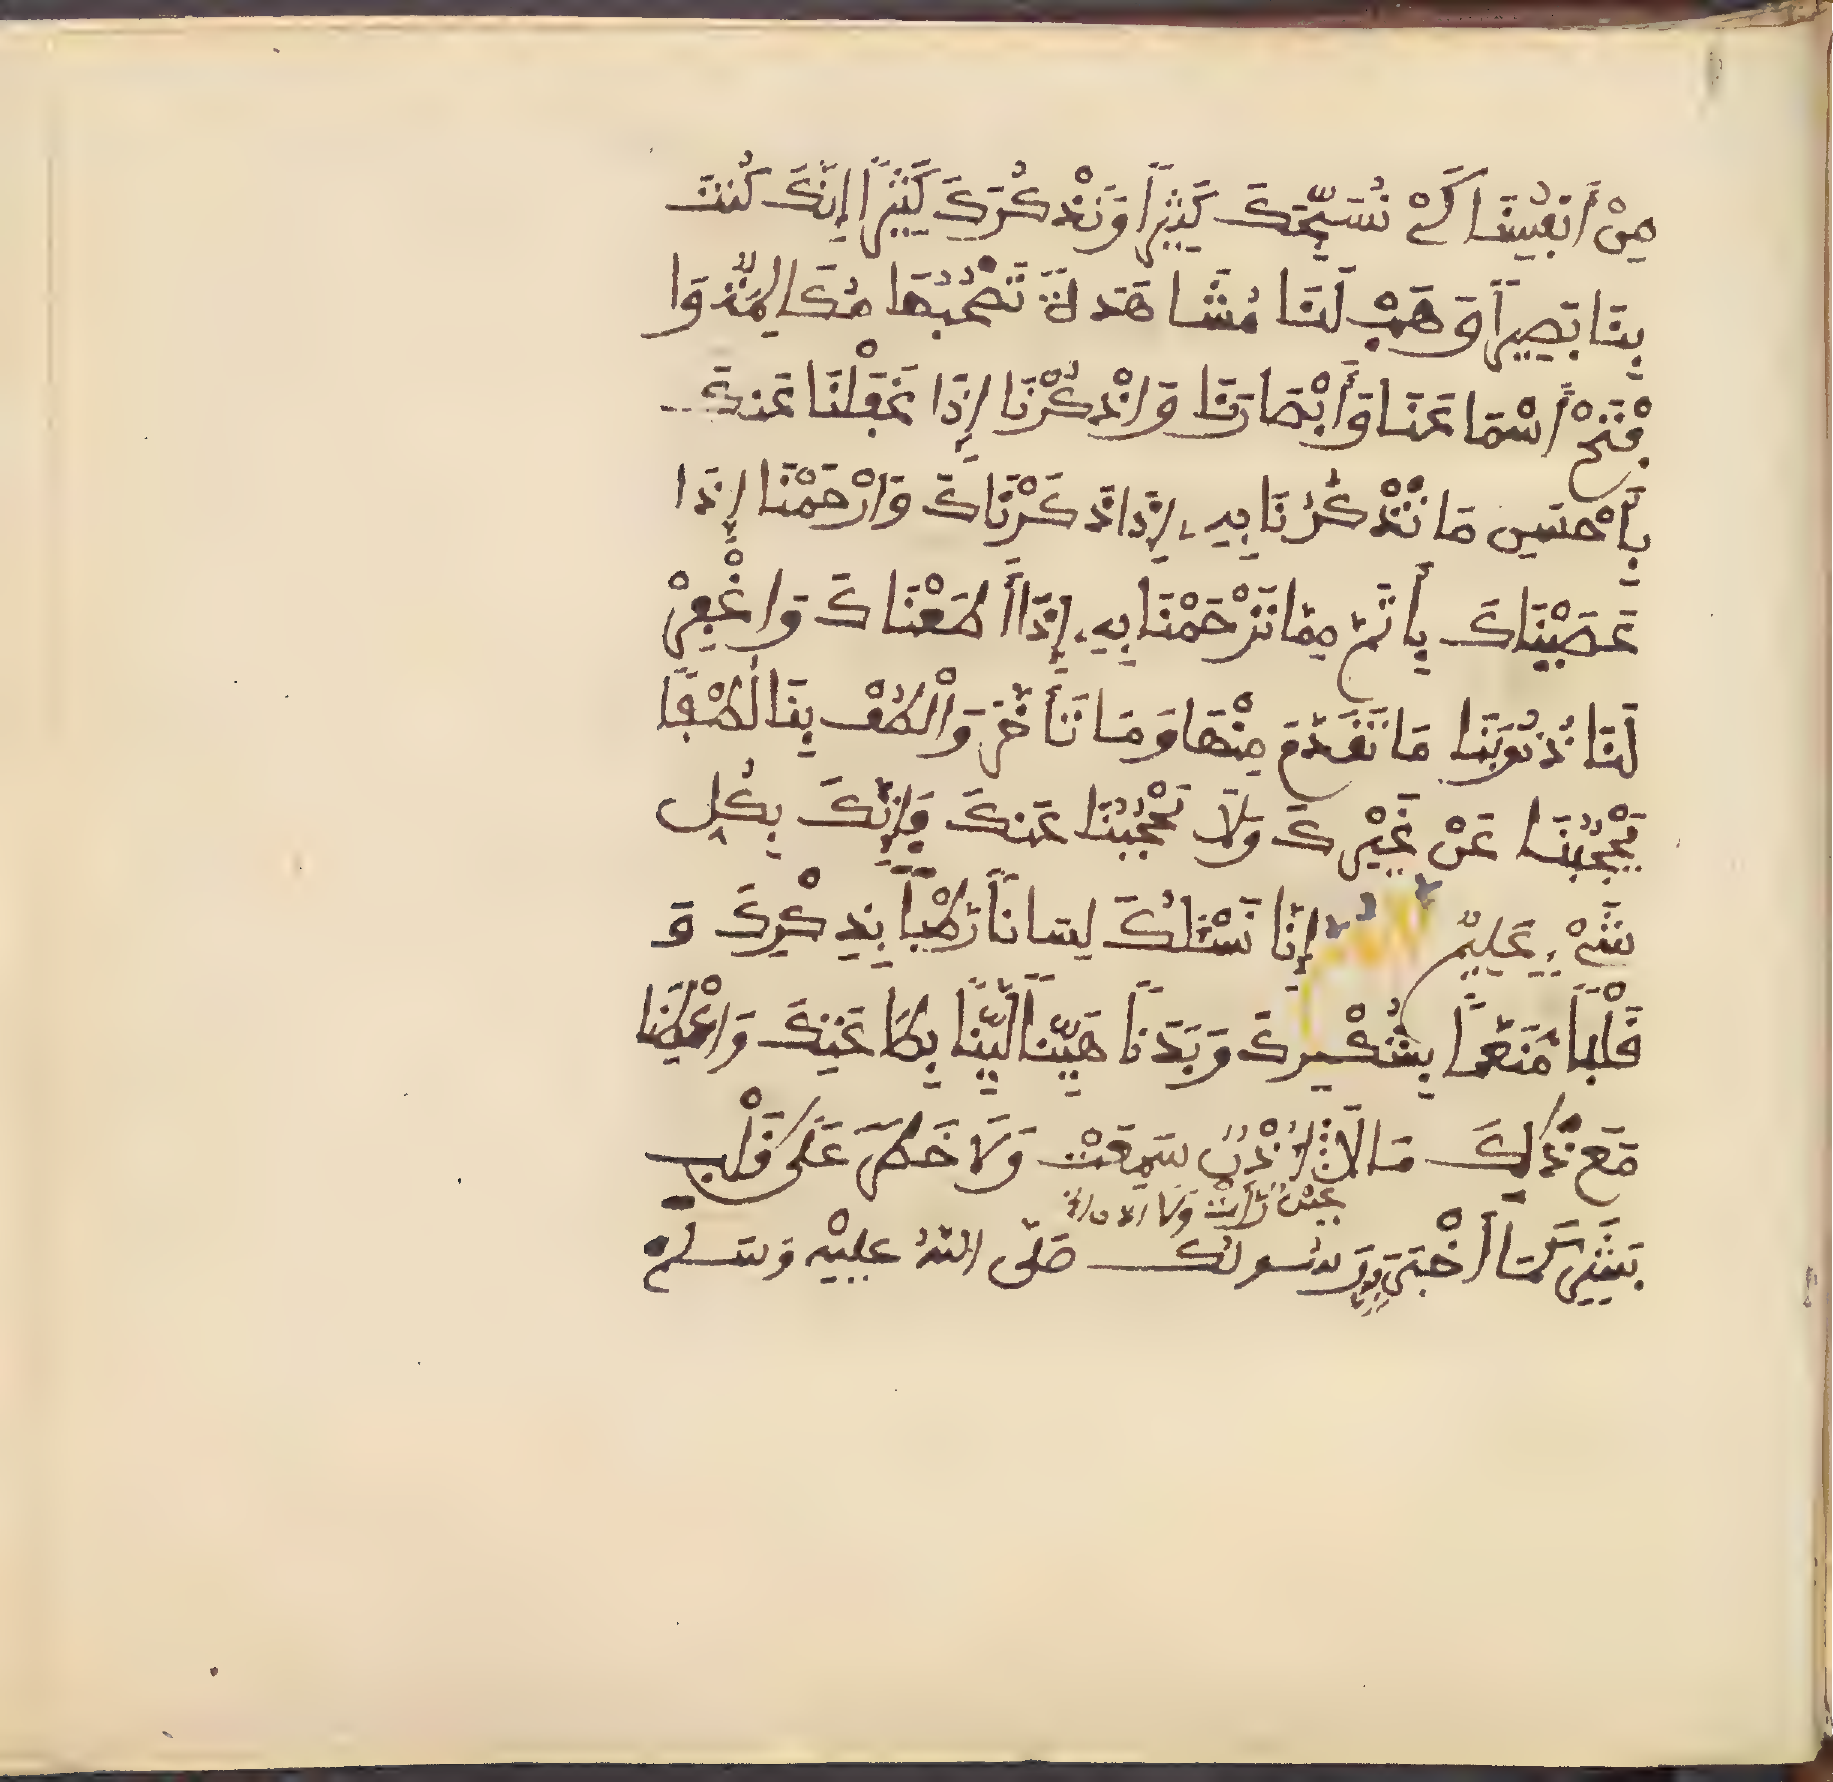 مِنْ أَنفُسِنَا كَيْ نُسَبِّحَكَ كَثِيراً وَنَذْكُرَكَ كَثِيراً إِنَّكَ كُنتَ
بِنَا بَصِيراً وَهَبْ لَنَا مُشَاهَدَةً تَصْحَبُهَا مُكَالَمَةٌ وَا
فْتَحْ أَسْمَاعَنَا وَأَبْصَارَنَا وَاذْكُرْنَا إِذَا غَفَلْنَا عَنكَ
بِأَحْسَنِ مَا تَذْكُرُنَا بِهِ إِذَا ذَكَرْنَاكَ وَارْحَمْنَا إِذَا
عَصَيْنَاكَ بِأَتَمِّ مِمَّا تَرْحَمْنَا بِهِ إِذَا أَطَعْنَاكَ وَاغْفِرْ
لَنَا ذُنُوبَنَا مَا تَقَدَّمَ مِنْهَا وَمَا تَأَخَّرَ وَالْطُفْ بِنَا لُطْفًا
يَحْجُبُنَا عَنْ غَيْرِكَ وَلَا يَحْجُبُنَا عَنكَ فَإِنَّكَ بِكُلِّ
شَيْءٍ عَلِيمٌ إِنَّا نَسْئَلُكَ لِسَاناً رَطْباً بِذِكْرِكَ وَ
قَلْباً مُنَعَّماً بِشُكْرِكَ وَبَدَناً هَيِّناً لَيِّناً بِطَاعَتِكَ وَاعْطِنَا
مَعَ ذَلِكَ مَا لَا أُذُنٌ سَمِعَتْ وَلَا خَطَرَ عَلَى قَلْبِ
عَيْنٌ رَأَتْ وَلَا أذن
بَشَرٍ كَمَا أَخْبَرَ بِهِ رَسُولُكَ صَلَّى اللهُ عَلَيْهِ وَسَلَّمْ